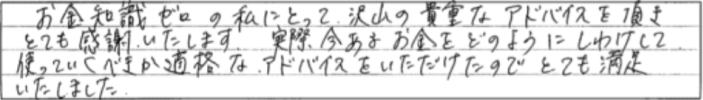 お金知識ゼロの私にとって、沢山の貴重なアドバイスを頂き
とても感謝いたします。実際、今あるお金をどのようにしわけして
使っていくべきか適格な、アドバイスをいただけたのでとても満足
いたしました。